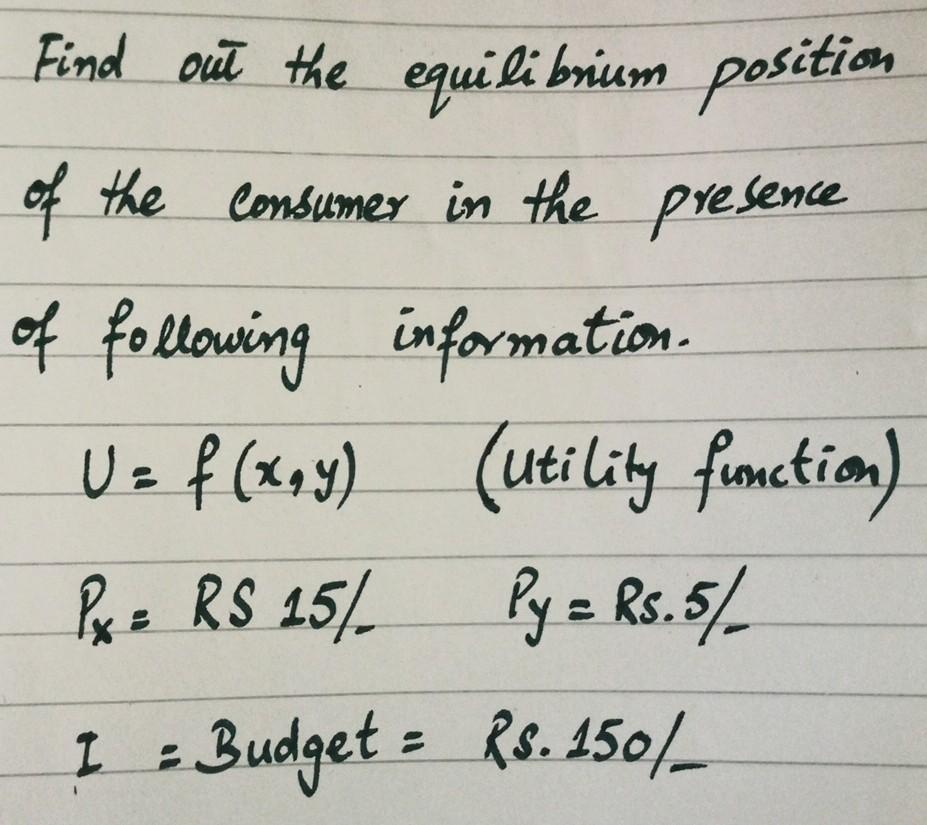 Find out the equilibrium position
of the consumer in the presence
of following information.
U = f (x, y) (Utility function)
Px = RS 15/_ Py = Rs. 5/_
I = Budget = Rs. 150/_